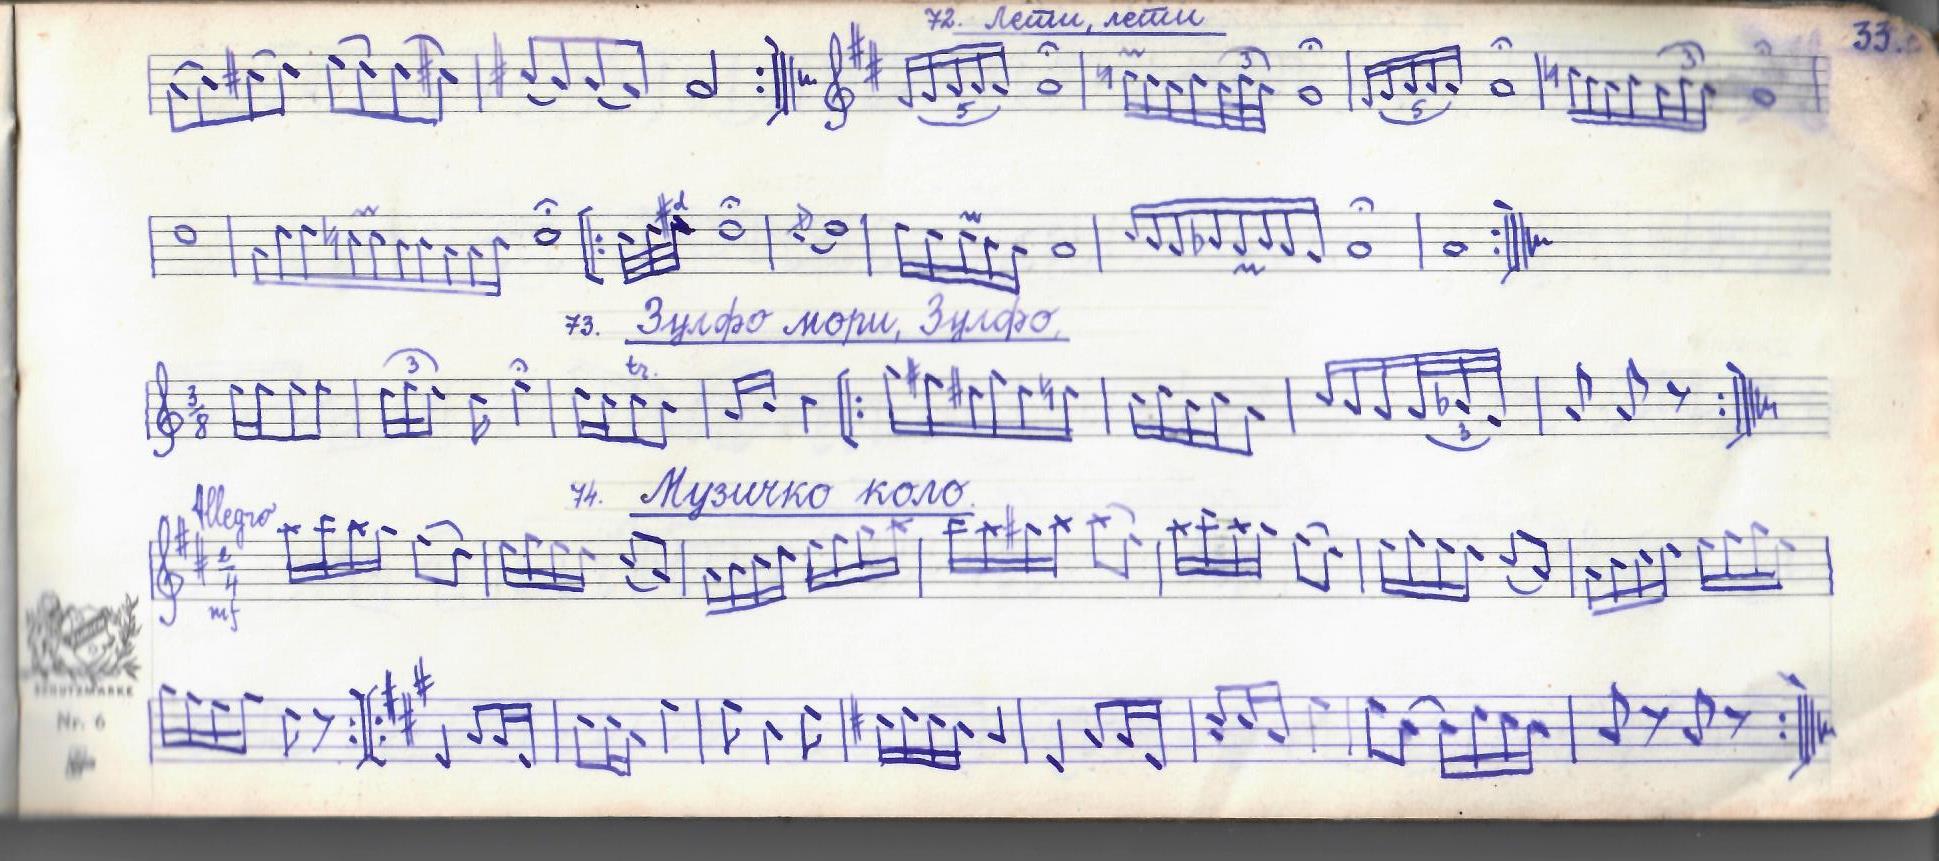 72. Лети, лети
33.
5
3
5
3
d
73. Зулфо мори, Зулфо.
3/8
3
tr.
3
74. Музичко коло.
Allegro
2/4
mf
SCHUTZMARKE
Nr. 6